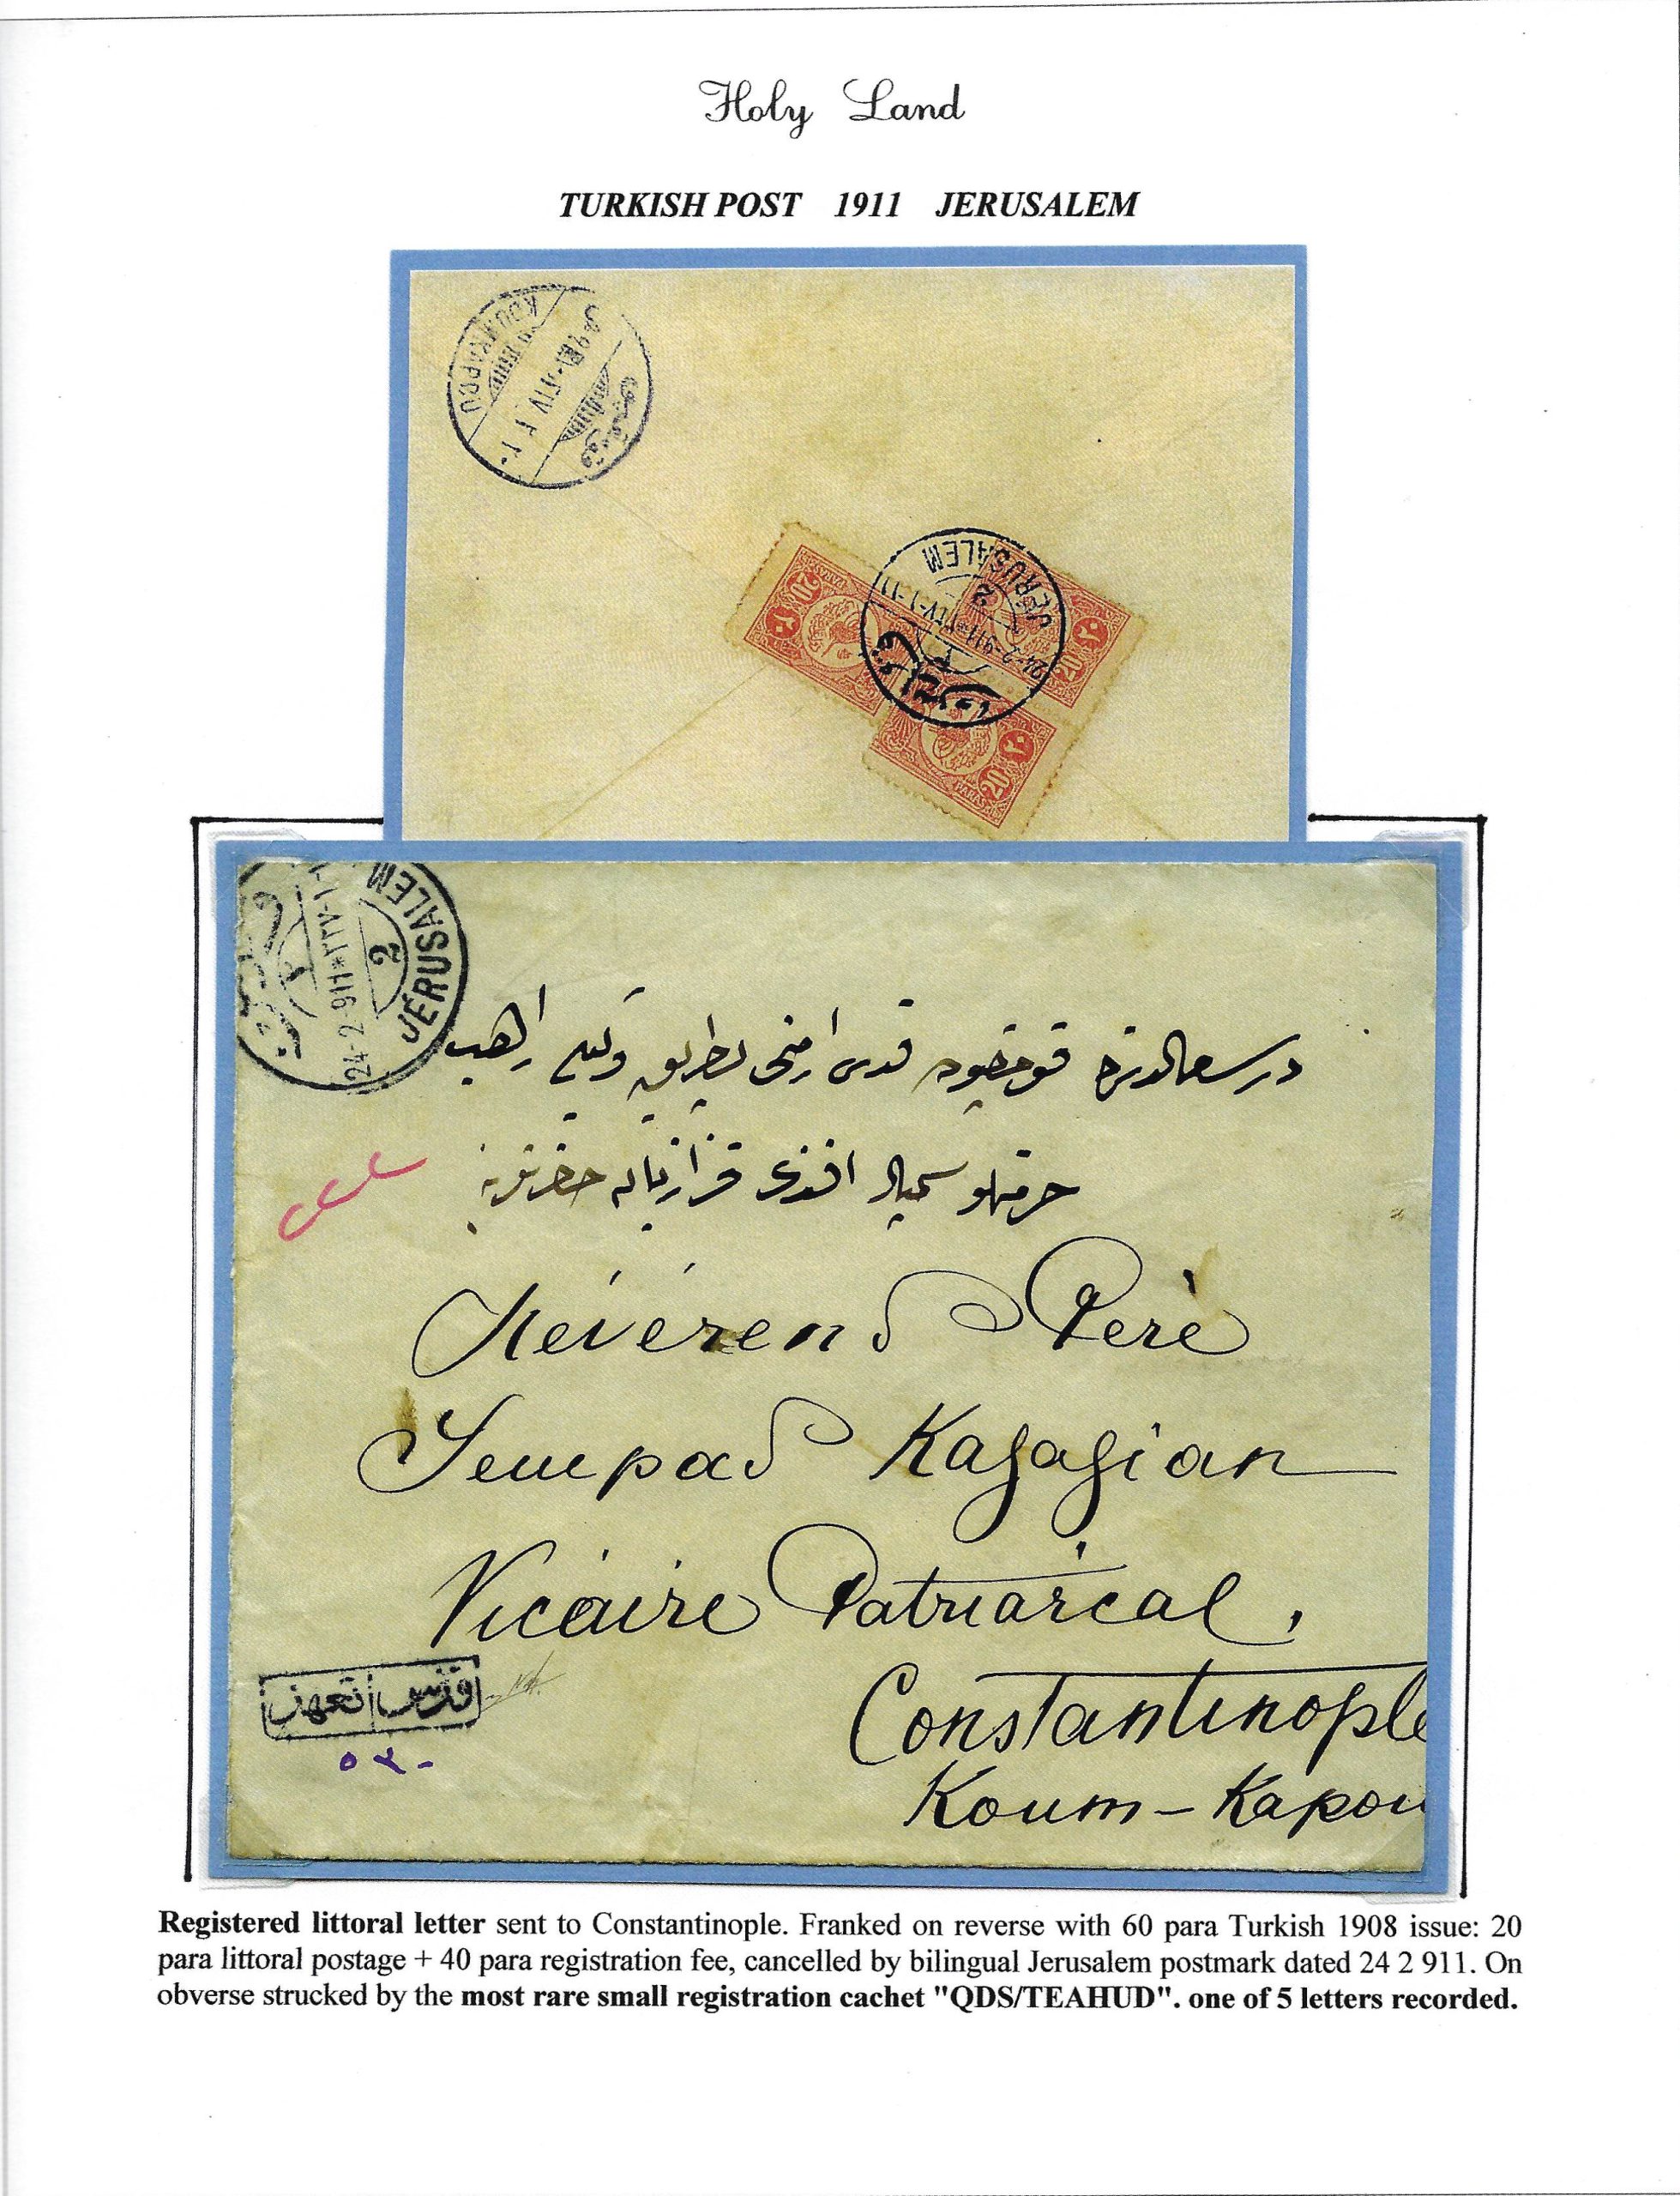 Holy Land
TURKISH POST 1911 JERUSALEM
KOUMKAPOU
JERUSALEM
2
24-2-911
20
٢٠
PARAS
20
٢٠
20
٢٠
PARAS
JÉRUSALEM
2
24-2-911
در سعادتده قومقپوده قدس ارمنی بطریق وکیلی راهب
افندی حضرتلرینه
Révérend Père
Sempad Kazazian
Vicaire Patriarcal,
Constantinople
Koum-Kapou
قدس تعهد
٥٢٠
Registered littoral letter sent to Constantinople. Franked on reverse with 60 para Turkish 1908 issue: 20
para littoral postage + 40 para registration fee, cancelled by bilingual Jerusalem postmark dated 24 2 911. On
obverse strucked by the most rare small registration cachet "QDS/TEAHUD". one of 5 letters recorded.